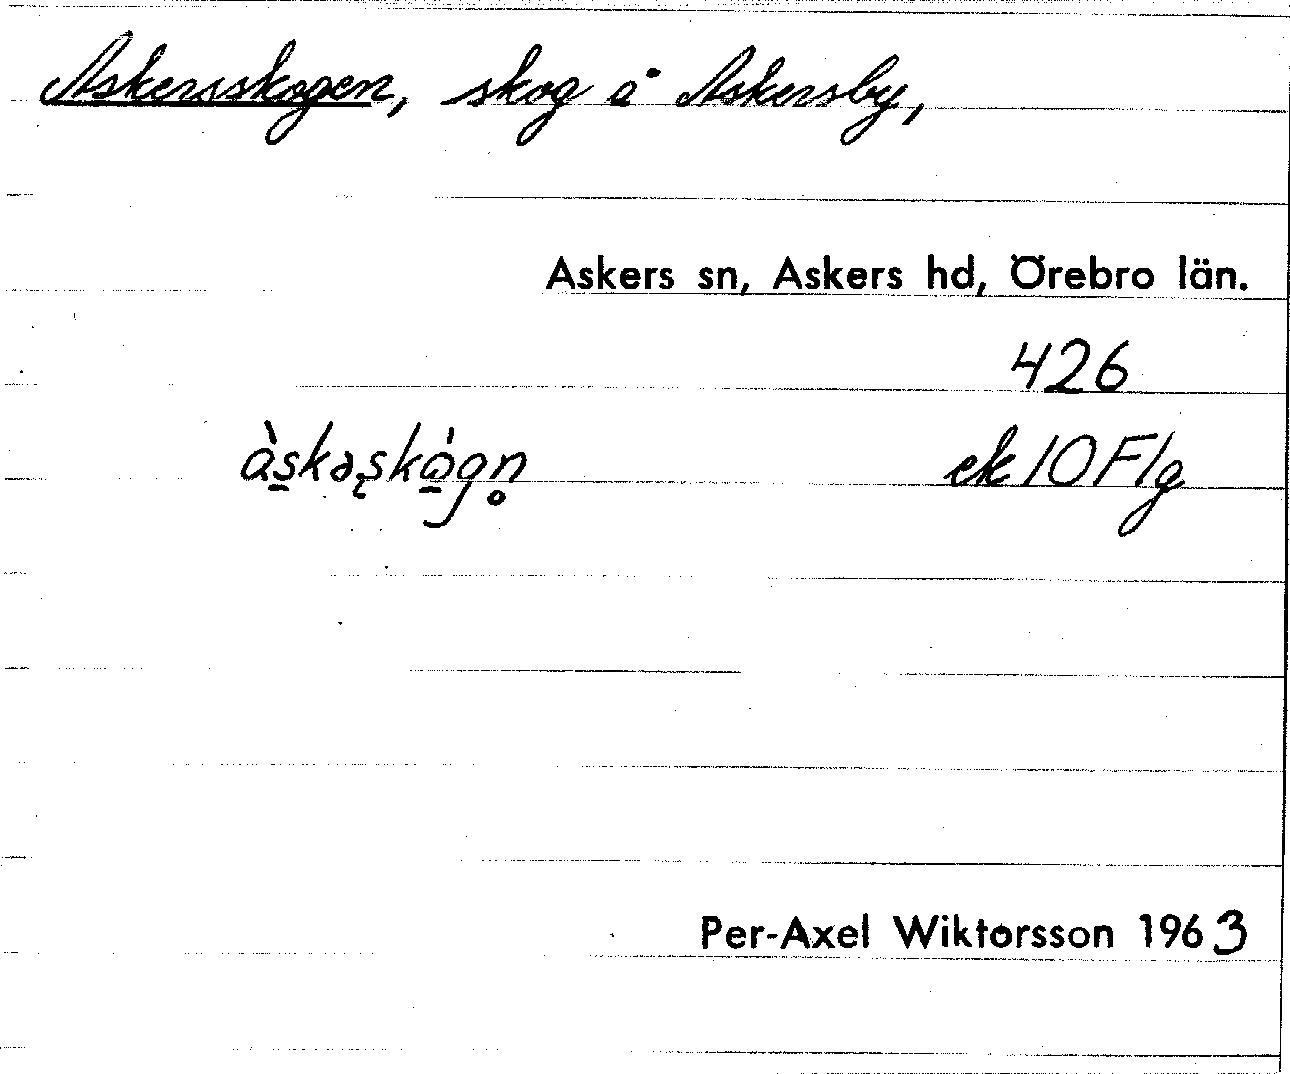 Askersskogen, skog å Askersby,
Askers sn, Askers hd, Örebro län.
426
às̠kəʂkó̠gn̥ ek 10 F1g
Per-Axel Wiktorsson 1963